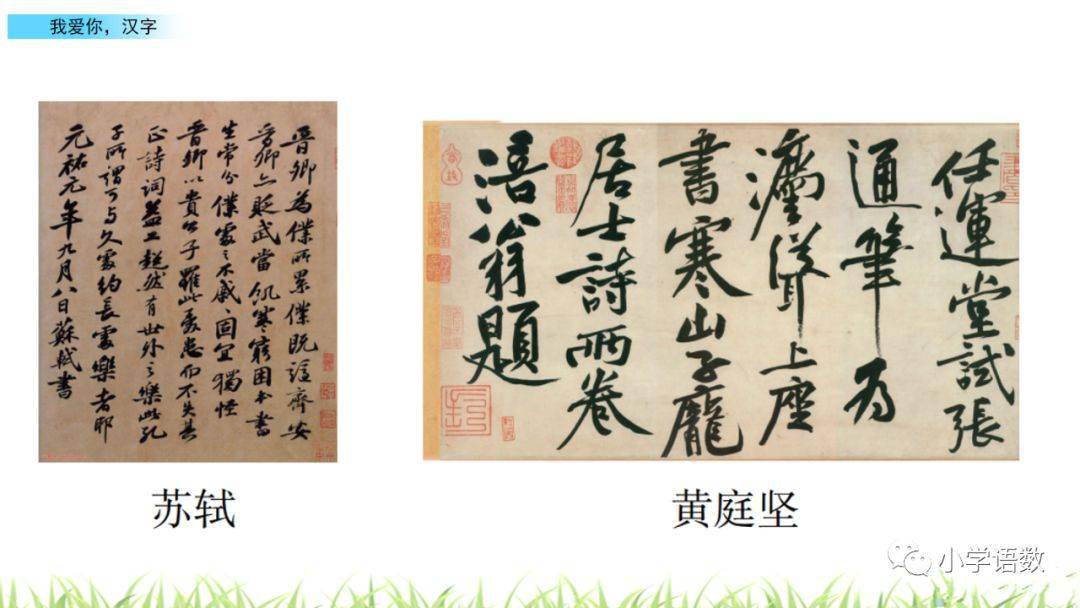 我爱你，汉字
晉卿為僕所累僕既謫齊安
晉卿亦貶武當飢寒窮困本書
生常分僕處之不戚戚固宜獨怪
晉卿以貴公子罹此憂患而不失其
正詩詞益工超然有世外之樂此孔
子所謂可與久處約長處樂者耶
元祐元年九月八日蘇軾書
任運堂試張
通筆為
灋聳上座
書寒山子龐
居士詩兩卷
涪翁題
苏轼
黄庭坚
小学语数